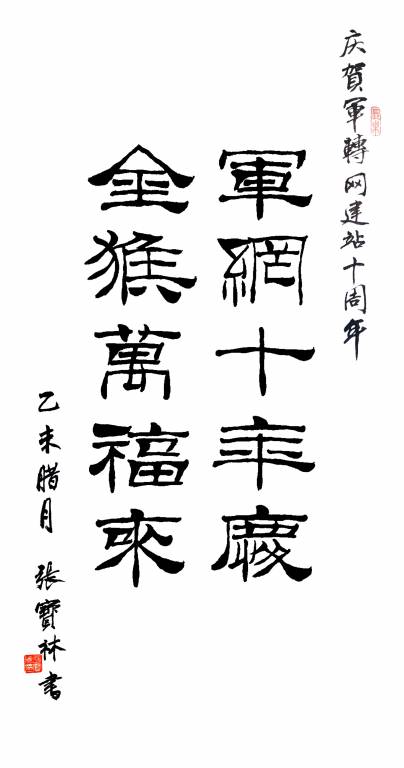 庆賀軍轉网建站十周年
軍網十年慶
金猴萬福來
乙未腊月 張寶林書